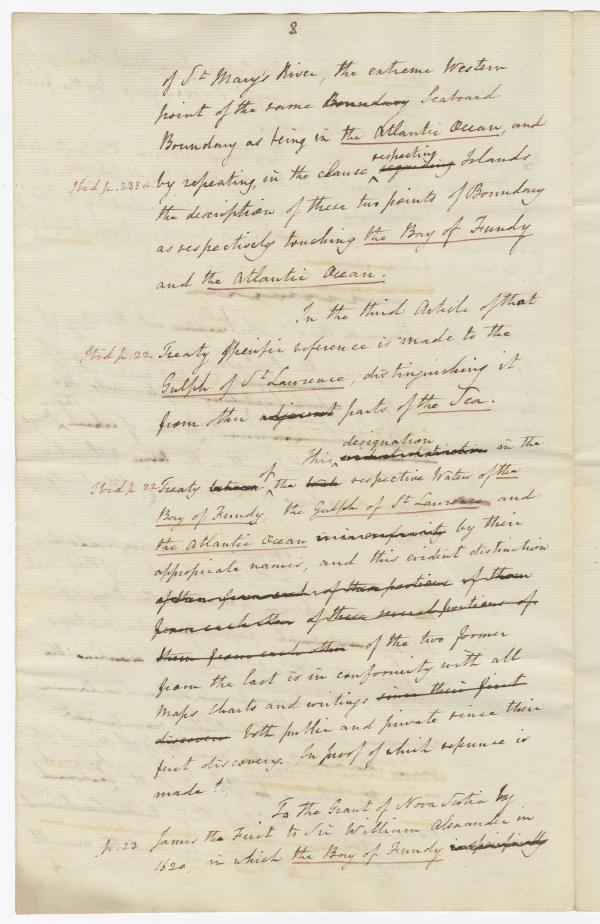 8
of St. Mary's River, the extreme Western
point of the same Boundary Seaboard
Boundary as being in the Atlantic Ocean, and
respecting
Ibid p. 233 &. by repeating, in the clause regarding Islands,
the description of these two points of Boundary
as respectively touching the Bay of Fundy
and the Atlantic Ocean.
In the third Article of that
Ibid p. 22. Treaty specific reference is made to the
Gulph of St. Lawrence, distinguishing it
from other adjacent parts of the Sea.
designation
This in the
of
Ibid p. 22 Treaty the respective Water of the
Bay of Fundy the Gulph of St. Lawrence and
the Atlantic Ocean in conformity by their
appropriate names, and this evident distinction
of them from each of them portions of them
from each other of these several portions of
them from each other of the two former
from the last is in conformity with all
Maps Charts and writings since their first
discovere both public and private since their
first discovery. In proof of which reference is
made !
To the Grant of Nova Scotia by
p. 23 James the First to Sir William Alexander in
1620, in which the Bay of Fundy is specifically